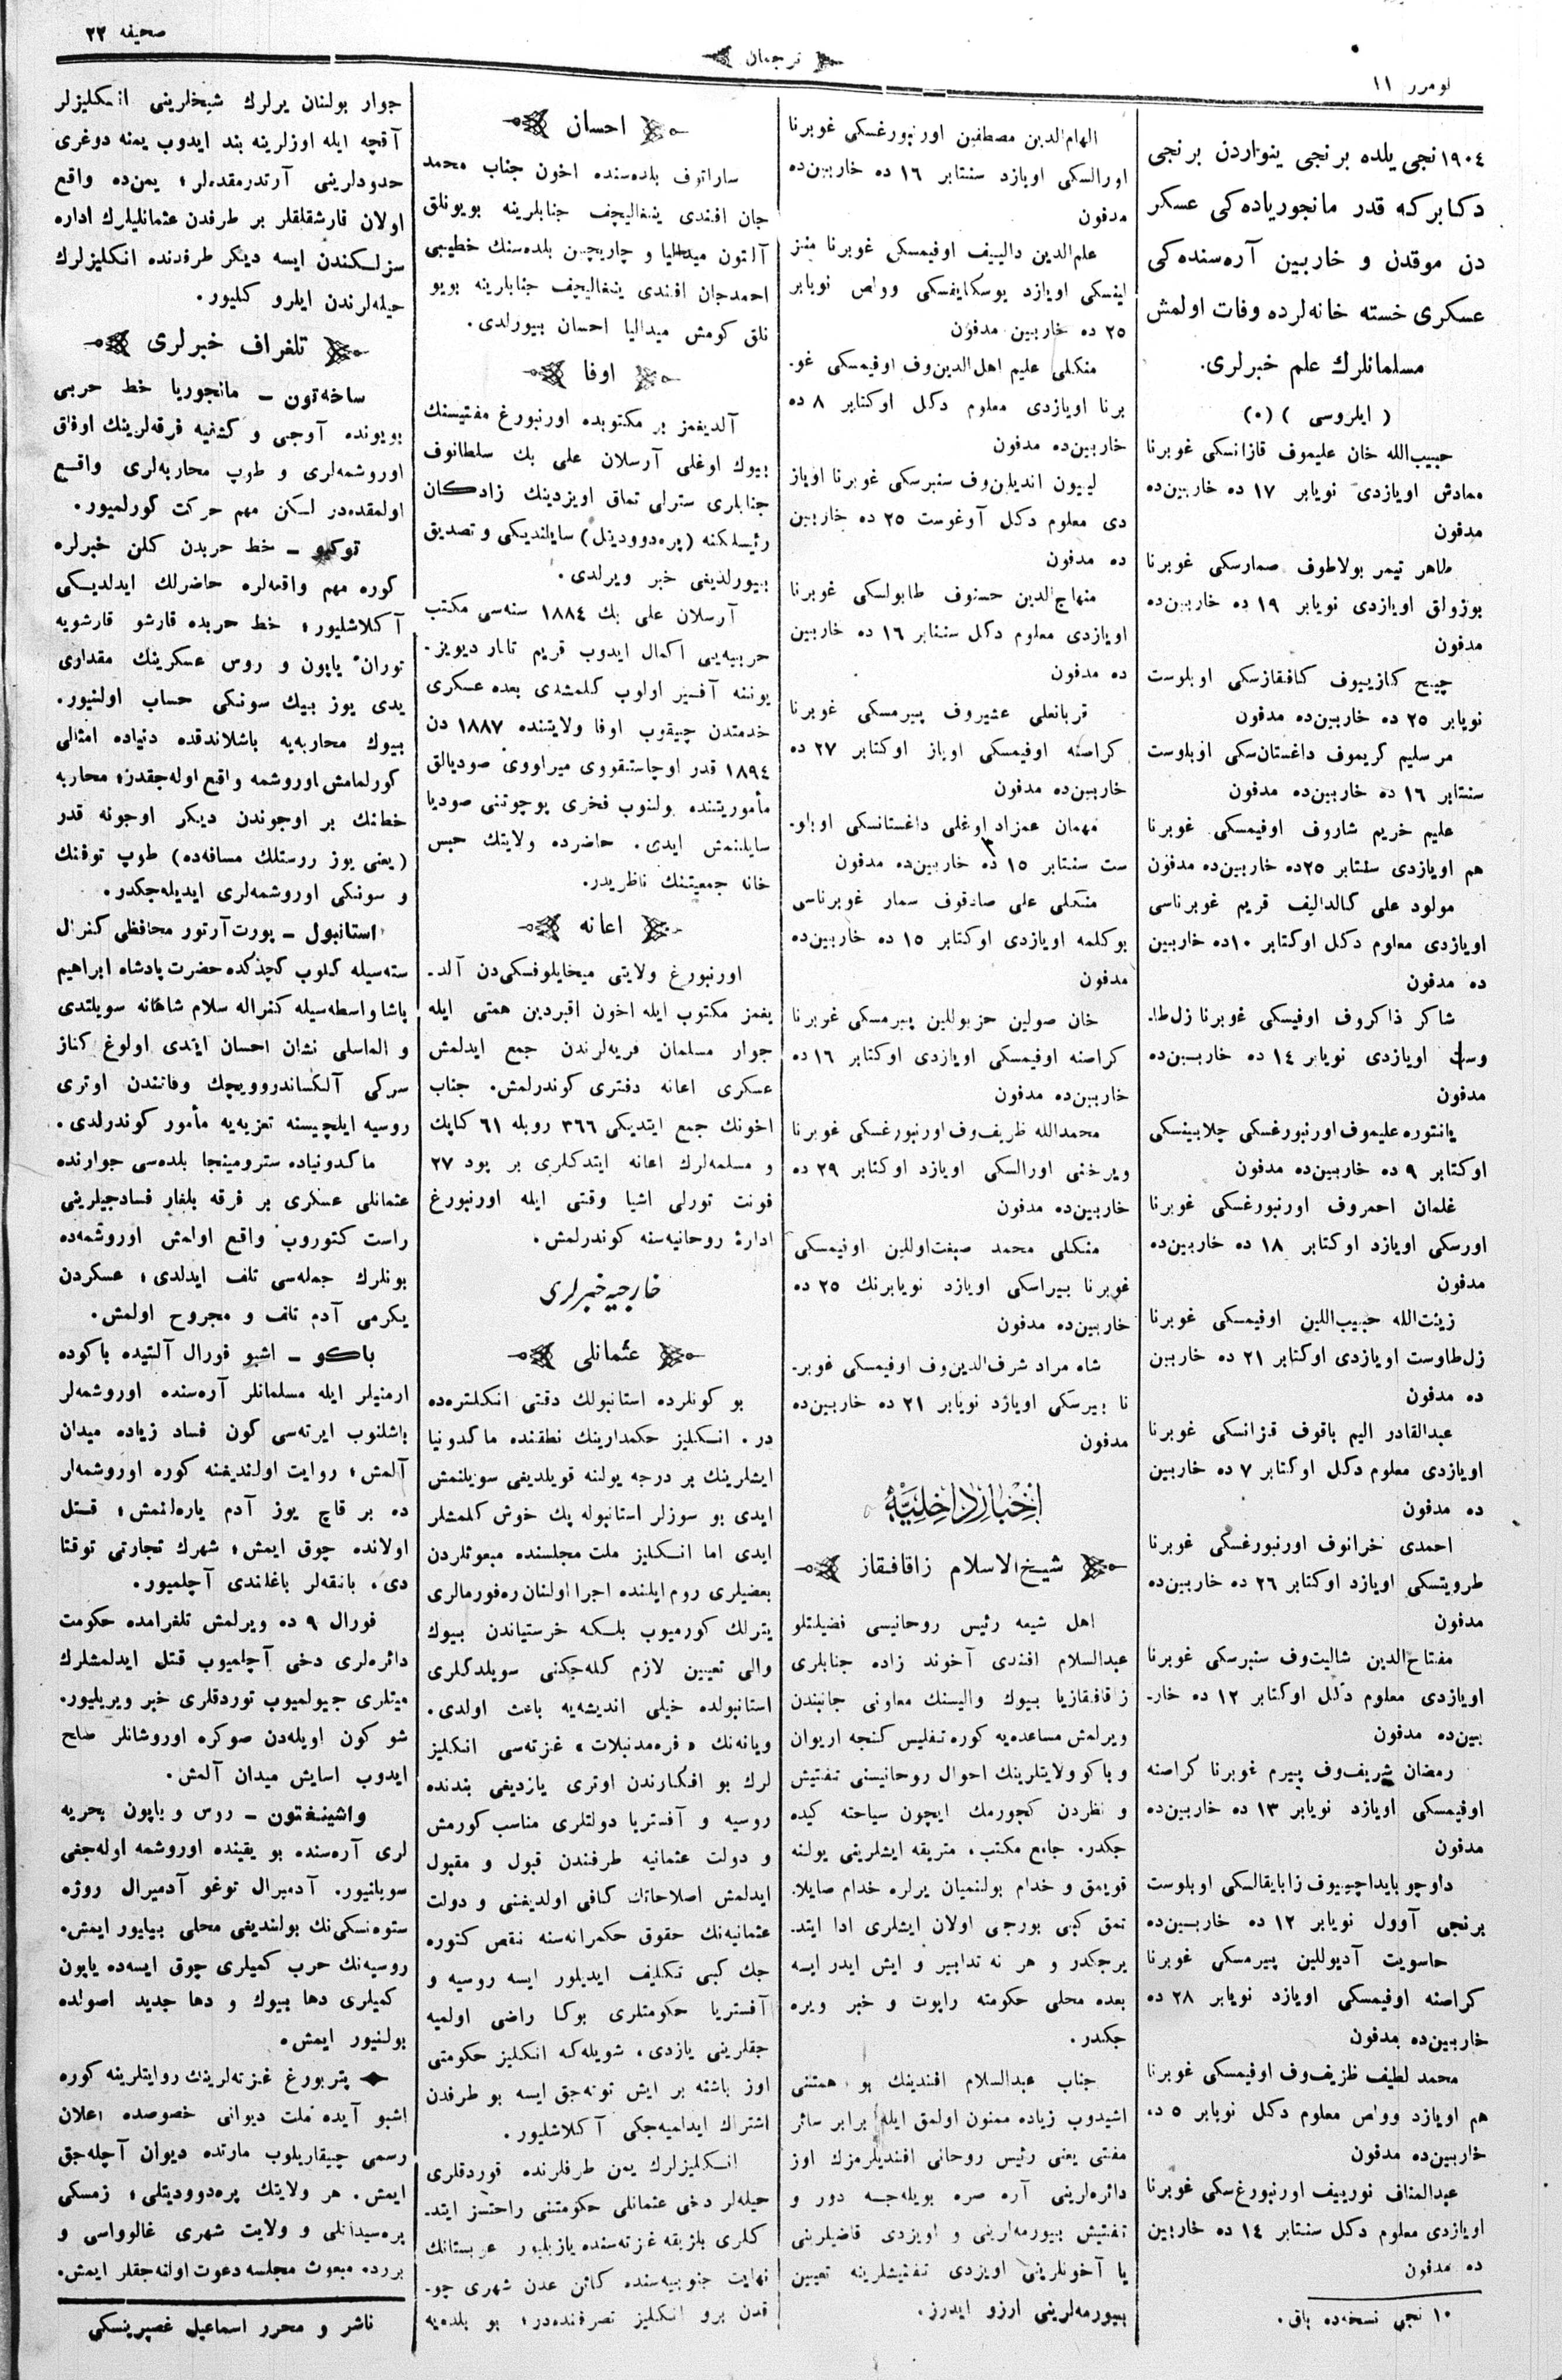 نومرر ١١
ترجمان
صحیفه ٢٢
١٩٠٤نجی یلده برنجی ینواردن برنجی
دكابركه قدر مانجوریاده‌کی عسکر
دن موقدن و خاربین آره‌سنده‌کی
عسکری خسته خانه‌لرده وفات اولمش
مسلمانلرك علم خبرلری.
( ایلروسی ) (٠)
حبیب‌الله خان علیموف قازانسکی غوبرنا
ممادش اویازدی نویابر ١٧ ده خاربین‌ده
مدفون
طاهر تیمر بولاطوف صمارسکی غوبرنا
بوزولق اویازدی نویابر ١٩ ده خاربین‌ده
مدفون
چیح كنازییوف كافقازسکی اوبلوست
نویابر ٢٥ ده خاربین‌ده مدفون
مرسلیم كریموف داغستان‌سکی اوبلوست
سنتابر ١٦ ده خاربین‌ده مدفون
علیم خریم شاروف اوفیمسکی غوبرنا
هم اویازدی سنتابر ٢٥ده خاربین‌ده مدفون
مولود علی كالدالیف قریم غوبرناسی
اویازدی معلوم دكل اوكتابر ١٠ده خاربین
ده مدفون
شاكر ذاكروف اوفیسکی غوبرنا زل‌طا.
وست اویازدی نویابر ١٤ ده خاربین‌ده
مدفون
یانتوره علیموف اورنبورغسکی چلابینسکی
اوكتابر ٩ ده خاربین‌ده مدفون
غلمان احمروف اورنبورغسکی غوبرنا
اورسکی اویازد اوكتابر ١٨ ده خاربین‌ده
مدفون
زینت‌الله حبیب‌اللین اوفیمسکی غوبرنا
زل‌طاوست اویازدی اوكتابر ٢١ ده خاربین
ده مدفون
عبدالقادر الیم باقوف قزانسکی غوبرنا
اویازدی معلوم دكل اوكتابر ٧ ده خاربین
ده مدفون
احمدی خرانوف اورنبورغسکی غوبرنا
طرویتسکی اویازد اوكتابر ٢٦ ده خاربین‌ده
مدفون
مفتاح‌الدین شالیت‌وف سنبرسکی غوبرنا
اویازدی معلوم دكل اوكتابر ١٢ ده خار.
بین‌ده مدفون
رمضان شریف‌وف پیرم غوبرنا كراصنه
اوفیمسکی اویازد نویابر ١٣ ده خاربین‌ده
مدفون
داوچو بایداچییوف زابایقالسکی اوبلوست
برنجی آوول نویابر ١٢ ده خاربین‌ده
حاسویت آدیوللین پیرمسکی غوبرنا
كراصنه اوفیمسکی اویازد نویابر ٢٨ ده
خاربین‌ده مدفون
محمد لطیف ظریف‌وف اوفیمسکی غوبرنا
هم اویازد وولص معلوم دكل نویابر ٥ ده
خاربین‌ده مدفون
عبدالمناف نورییف اورنبورغ‌سکی غوبرنا
اویازدی معلوم دكل سنتابر ١٤ ده خاربین
ده مدفون
١٠ نجی نسخه‌ده باق.
الهام‌الدین مصطفین اورنبورغسکی غوبرنا
اورالسکی اویازد سنتابر ١٦ ده خاربین‌ده
مدفون
علم‌الدین دالییف اوفیمسکی غوبرنا منز
لیفسکی اویازد یوسكایفسکی وولص نویابر
٢٥ ده خاربین مدفون
منكلی علیم اهل‌الدین‌وف اوفیمسکی غو.
برنا اویازدی معلوم دكل اوكتابر ٨ ده
خاربین‌ده مدفون
لیبون اندیلن‌وف سنبرسکی غوبرنا اویاز
دی معلوم دكل آوغوست ٢٥ ده خاربین
ده مدفون
منهاج‌الدین حسنوف طابولسکی غوبرنا
اویازدی معلوم دكل سنتابر ١٦ ده خاربین
ده مدفون
قربانعلی عشیروف پیرمسکی غوبرنا
كراصنه اوفیمسکی اویاز اوكتابر ٢٧ ده
خاربین‌ده مدفون
مهمان عمزاد اوغلی داغستانسکی اوبلو.
ست سنتابر ١٥ ده خاربین‌ده مدفون
منكلی علی صادقوف سمار غوبرناسی
بوكلمه اویازدی اوكتابر ١٥ ده خاربین‌ده
مدفون
خان صولین حزبوللین پیرمسکی غوبرنا
كراصنه اوفیمسکی اویازدی اوكتابر ١٦ ده
خاربین‌ده مدفون
محمدالله ظریف‌وف اورنبورغسکی غوبرنا
ویرخنی اورالسکی اویازد اوكتابر ٢٩ ده
خاربین‌ده مدفون
منكلی محمد صبغت‌اوللین اوفیمسکی
غوبرنا بیراسکی اویازد نویابرنك ٢٥ ده
خاربین‌ده مدفون
شاه مراد شرف‌الدین‌وف اوفیمسکی غوبر.
نا بیرسکی اویازد نویابر ٢١ ده خاربین‌ده
مدفون
اخبار داخلیه
شیخ‌الاسلام زاقافقاز
اهل شیعه رئیس روحانیسی فضیلتلو
عبدالسلام افندی آخوند زاده جنابلری
زاقافقازیا بیوك والیسنك معاونی جانبندن
ویرلمش مساعده‌یه كوره تفلیس كنجه اریوان
و باكو ولایتلرینك احوال روحانیسنی تفتیش
و نظردن كچورمك ایچون سیاحته كیده
جكدر. جامع مكتب، متریقه ایشلرینی یولنه
قویمق و خدام بولنمیان یرلره خدام صایلا.
نمق كبی بورجی اولان ایشلری ادا ایتد.
یرجكدر و هر نه تدابیر و ایش ایدر ایسه
بعده محلی حكومته راپوت و خبر ویره
جكدر.
جناب عبدالسلام افندینك بو همتنی
اشیدوب زیاده ممنون اولمق ایله برابر سائر
مفتی یعنی رئیس روحانی افندیلرمزك اوز
دائره‌لرینی آره صره بویله‌جه دور و
تفتیش بیورمه‌لرینی و اویزدی قاضیلرینی
یا آخونلرینی اویزدی تفتیشلرینه تعیین
بیورمه‌لرینی ارزو ایدرز.
احسان
ساراتوف بلده‌سنده اخون جناب محمد
جان افندی ینغالیچف جنابلرینه بویونلق
آلتون میدالیا و چاریچین بلده‌سنك خطیبی
احمدجان افندی ینغالیچف جنابلرینه بویو
نلق كومش میدالیا احسان بیورلدی.
اوفا
آلدیغمز بر مكتوبده اورنبورغ مفتیسنك
بیوك اوغلی آرسلان علی بك سلطانوف
جنابلری سترلی تماق اویزدینك زادكان
رئیسلكنه (پره‌دوودیتل) سایلندیكی و تصدیق
بیورلدیغی خبر ویرلدی.
آرسلان علی بك ١٨٨٤ سنه‌سی مكتب
حربیه‌یی اكمال ایدوب قریم تاتار دیویز.
یوننه آفسیر اولوب كلمشدی بعده عسكری
خدمتدن چیقوب اوفا ولایتنده ١٨٨٧ دن
١٨٩٤ قدر اوچاستقووی میراووی صودیالق
مأموریتنده بولنوب فخری پوچوتنی صودیا
سایلنمش ایدی. حاضرده ولایتك حبس
خانه جمعیتنك ناظریدر.
اعانه
اورنبورغ ولایتی میخایلوفسکی‌دن آلد.
یغمز مكتوب ایله اخون اقبردین همتی ایله
جوار مسلمان قریه‌لرندن جمع ایدلمش
عسكری اعانه دفتری كوندرلمش. جناب
اخونك جمع ایتدیكی ٣٦٦ روبله ٦١ كاپك
و مسلمه‌لرك اعانه ایتدكلری بر پود ٢٧
فونت تورلی اشیا وقتی ایله اورنبورغ
ادارهٔ روحانیه‌سنه كوندرلمش.
خارجیه خبرلری
عثمانلی
بو كونلرده استانبولك دقتی انكلتره‌ده
در. انكلیز حكمدارینك نطقنده ماكدونیا
ایشلرینك بر درجه یولنه قویلدیغی سویلنمش
ایدی بو سوزلر استانبوله پك خوش كلمشلر
ایدی اما انكلیز ملت مجلسنده مبعوثلردن
بعضیلری روم ایلنده اجرا اولنان ره‌فورمالری
یترلك كورمیوب بلكه خرستیاندن بیوك
والی تعیین لازم كله‌جكنی سویلدكلری
استانبولده خیلی اندیشه‌یه باعث اولدی.
ویانه‌نك «فره‌مدنبلات» غزته‌سی انكلیز
لرك بو افكارندن اوتری یازدیغی بندنده
روسیه و آفستریا دولتلری مناسب كورمش
و دولت عثمانیه طرفندن قبول و مقبول
ایدلمش اصلاحاتك كافی اولدیغنی و دولت
عثمانیه‌نك حقوق حكمرانه‌سنه نقص كتوره
جك كبی تكلیف ایدیلور ایسه روسیه و
آفستریا حكومتلری بوكا راضی اولمیه
جقلرینی یازدی، شویله‌كه انكلیز حكومتی
اوز باشنه بر ایش توته‌جق ایسه بو طرفدن
اشتراك ایدلمیه‌جكی آكلاشلیور.
انكلیزلرك یمن طرفلرنده قوردقلری
حیله‌لر دخی عثمانلی حكومتنی راحتسز ایتد.
كلری بلزیقه غزته‌سنده یازیلیور عربستانك
نهایت جنوبیه‌سنده كائن عدن شهری چو.
قدن برو انكلیز تصرفنده‌در؛ بو بلده‌یه
جوار بولنان یرلرك شیخلرینی انكلیزلر
آقچه ایله اوزلرینه بند ایدوب یمنه دوغری
حدودلرینی آرتدرمقده‌لر؛ یمن‌ده واقع
اولان قارشقلقلر بر طرفدن عثمانلیلرك اداره
سزلكندن ایسه دیكر طرفدنده انكلیزلرك
حیله‌لرندن ایلرو كلیور.
تلغراف خبرلری
ساخه‌تون — مانجوریا خط حربی
بویونده آوجی و كشفیه فرقه‌لرینك اوفاق
اوروشمه‌لری و طوپ محاربه‌لری واقع
اولمقده‌در لكن مهم حركت كورلمیور.
توكیو — خط حربدن كلن خبرلره
كوره مهم واقعه‌لره حاضرلك ایدلدیكی
آكلاشلیور؛ خط حربده قارشو قارشویه
توران یاپون و روس عسكرینك مقداری
یدی یوز بیك سونكی حساب اولنیور.
بیوك محاربه‌یه باشلاندقده دنیاده امثالی
كورلمامش اوروشمه واقع اوله‌جقدر؛ محاربه
خطنك بر اوجوندن دیكر اوجونه قدر
(یعنی یوز ررستلك مسافه‌ده) طوپ توفنك
و سونكی اوروشمه‌لری ایدیله‌جكدر.
استانبول — پورت‌آرتور محافظی كنرال
سته‌سیله كلوب كچدكده حضرت پادشاه ابراهیم
پاشا واسطه‌سیله كنراله سلام شاهانه سویلتدی
و الماسلی نشان احسان ایتدی اولوغ كناز
سركی آلكساندروویچك وفاتندن اوتری
روسیه ایلچیسنه تعزیه‌یه مأمور كوندرلدی.
ماكدونیاده سترومینجا بلده‌سی جوارنده
عثمانلی عسكری بر فرقه بلغار فسادجیلرینی
راست كتوروب واقع اولمش اوروشمه‌ده
بونلرك جمله‌سی تلف ایدلدی؛ عسكردن
یكرمی آدم تلف و مجروح اولمش.
باكو — اشبو فورال آلتیده باكوده
ارمنیلر ایله مسلمانلر آره‌سنده اوروشمه‌لر
باشلنوب ایرته‌سی كون فساد زیاده میدان
آلمش؛ روایت اولندیغنه كوره اوروشمه‌لر
ده بر قاچ یوز آدم یاره‌لنمش؛ قتل
اولانده چوق ایمش؛ شهرك تجارتی توقتا
دی. بانقه‌لر باغلندی آچلمیور.
فورال ٩ ده ویرلمش تلغرامده حكومت
دائره‌لری دخی آچلمیوب قتل ایدلمشلرك
میتلری جیولمیوب توردقلری خبر ویریلیور.
شو كون اویله‌دن صوكره اوروشانلر صلح
ایدوب اسایش میدان آلمش.
واشینغتون — روس و یاپون بحریه
لری آره‌سنده بو یقینده اوروشمه اوله‌جغی
سویلنیور. آدمیرال توغو آدمیرال روژه
ستوه‌نسكی‌نك بولندیغی محلی بیلیور ایمش.
روسیه‌نك حرب كمیلری چوق ایسه‌ده یاپون
كمیلری دها بیوك و دها جدید اصولده
بولنیور ایمش.
پتربورغ غزته‌لرینك روایتلرینه كوره
اشبو آیده ملت دیوانی خصوصده اعلان
رسمی چیقاریلوب مارتده دیوان آچله‌جق
ایمش. هر ولایتك پره‌دوودیتلی؛ زمسكی
پره‌سیداتلی و ولایت شهری غالوواسی و
برر‌ده مبعوث مجلسه دعوت اولنه‌جقلر ایمش.
ناشر و محرر اسماعیل غصپرینسکی